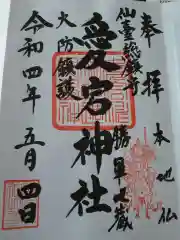 奉拝 本地仏
仙臺總鎮守 勝軍地蔵
愛宕神社
火防鎮護
令和四年五月四日